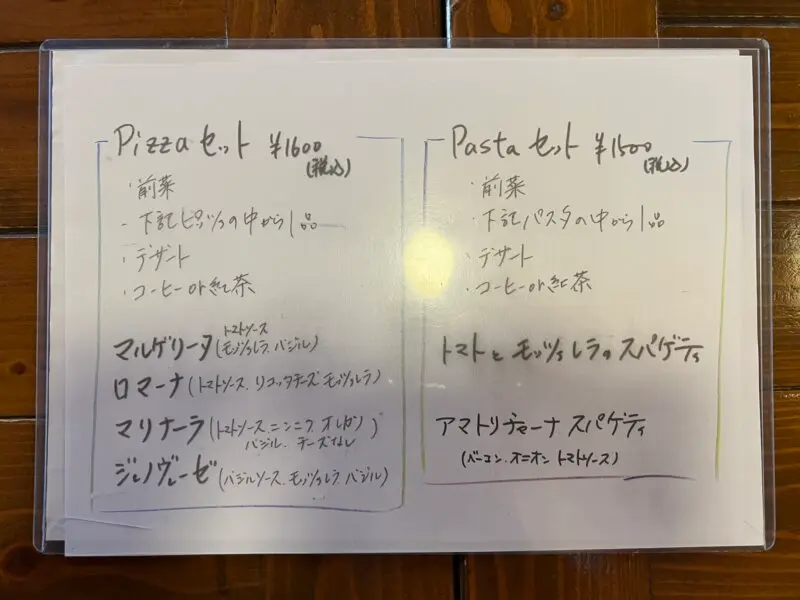 Pizzaセット ¥1600
(税込)
・前菜
・下記ピッツァの中から1品
・デザート
・コーヒーor紅茶
トマトソース
マルゲリータ(モッツァレラ、バジル)
ロマーナ(トマトソース、リコッタチーズ、モッツァレラ)
マリナーラ(トマトソース、ニンニク、オレガノ
バジル、チーズなし)
ジェノヴェーゼ(バジルソース、モッツァレラ、バジル)
Pastaセット ¥1500
(税込)
・前菜
・下記パスタの中から1品
・デザート
・コーヒーor紅茶
トマトとモッツァレラのスパゲティ
アマトリチャーナ スパゲティ
(ベーコン、オニオン トマトソース)